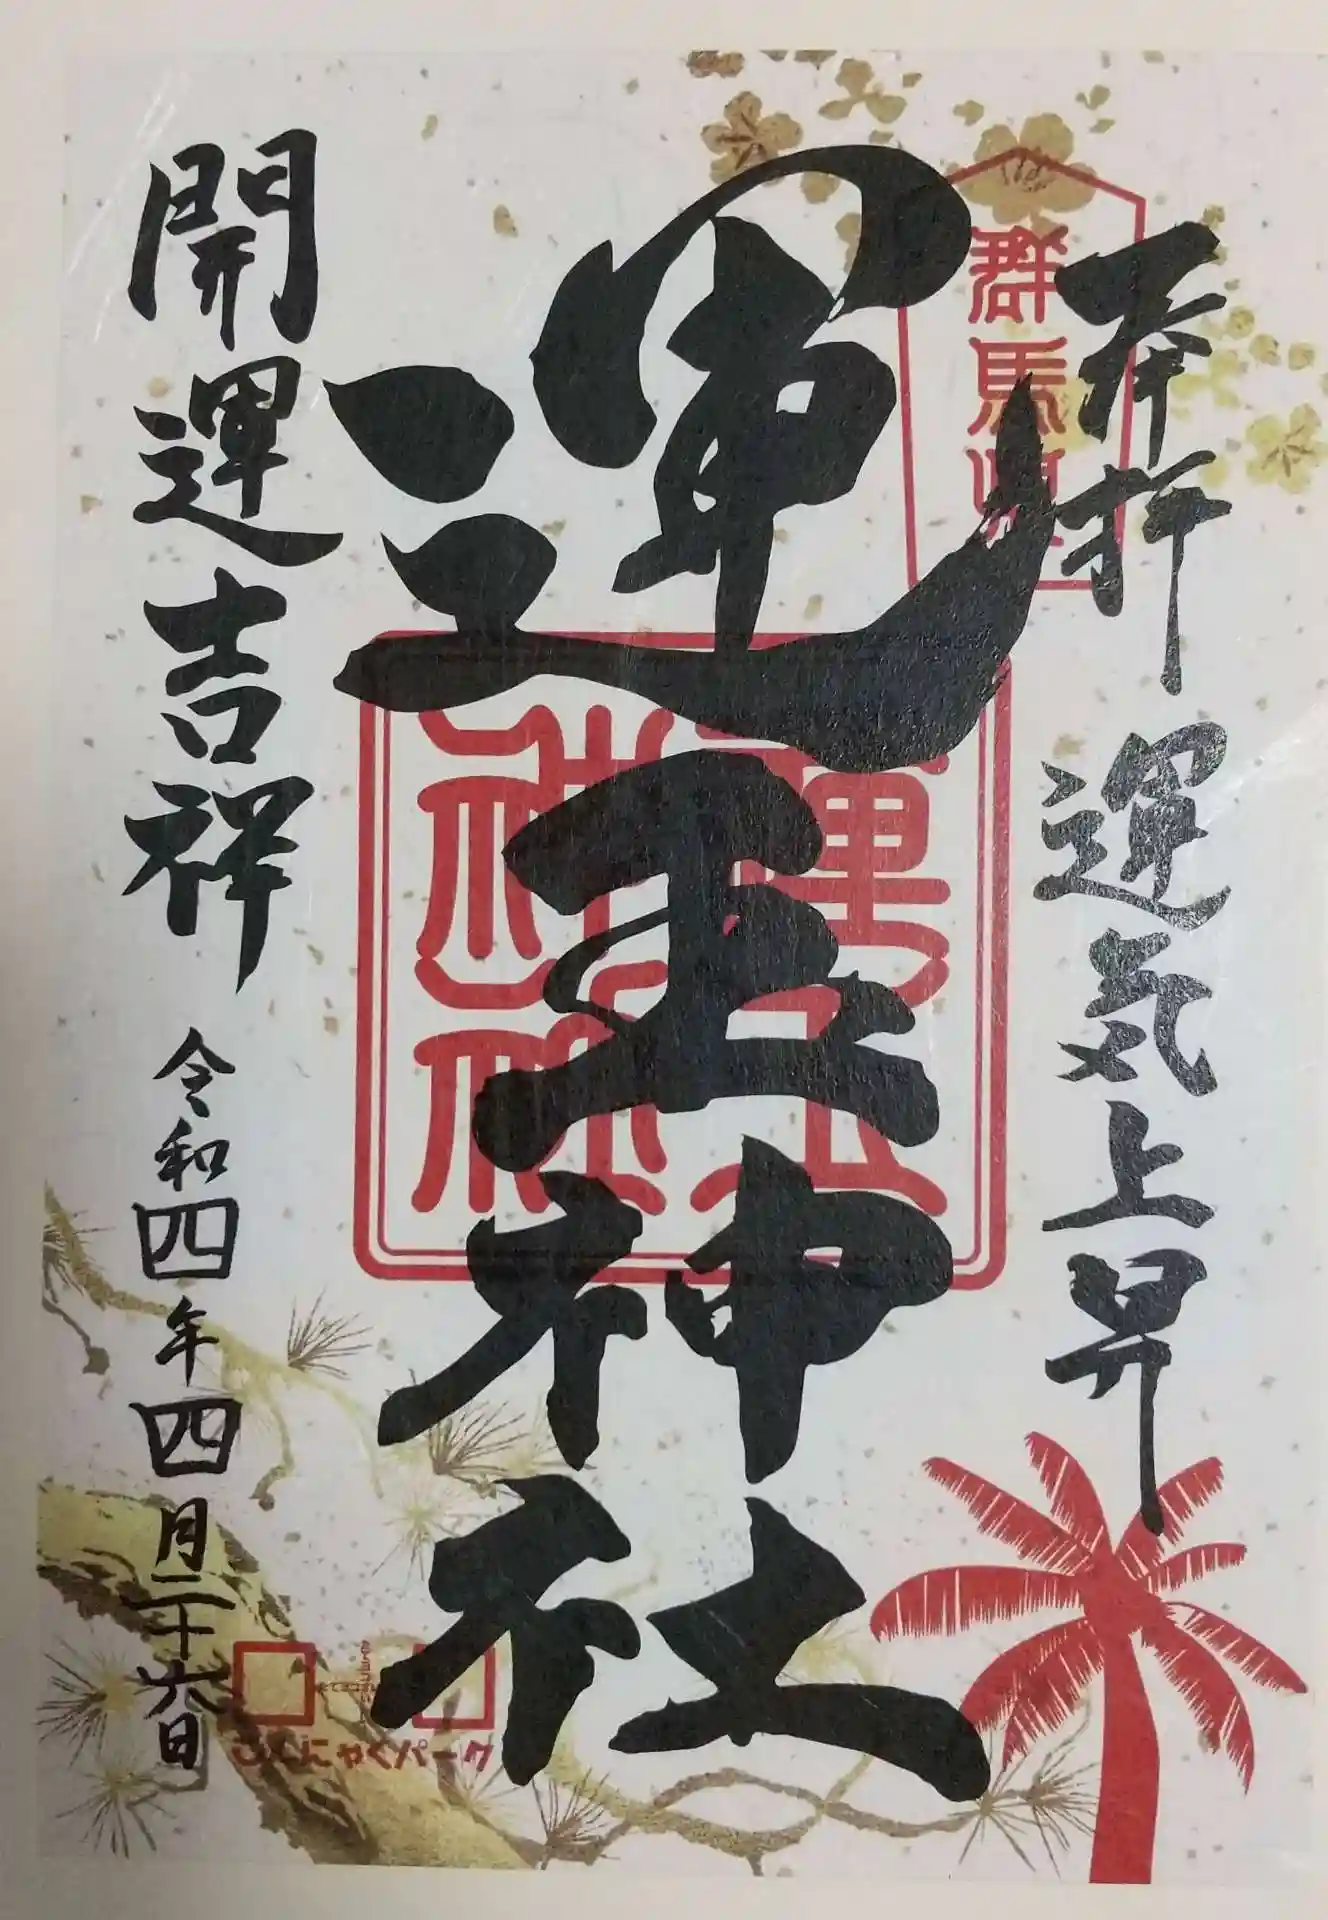 奉拝
運気上昇
群馬県
運玉神社
運玉神社
開運吉祥
令和四年四月二十六日
こんにゃくパーク